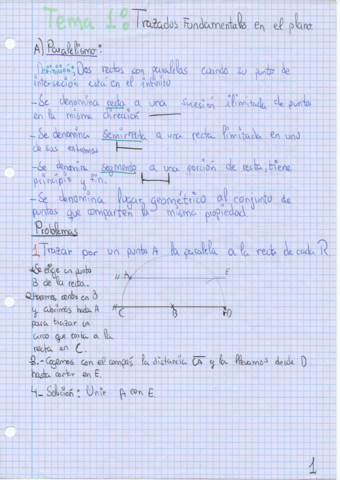 Tema 1º Trazados Fundamentales en el plano.
A) Paralelismo:
Definición: Dos rectas son paralelas cuando su punto de
intersección está en el infinito
- Se denomina recta a una sucesión ilimitada de puntos
en la misma dirección
- Se denomina Semirrecta a una recta limitada en uno
de sus extremos
- Se denomina segmento a una porción de recta, tiene
principio y fin.
- Se denomina lugar geométrico al conjunto de
puntos que comparten la misma propiedad.
Problemas
1. Trazar por un punto A la paralela a la recta dada R
1. Se elige un punto
B de la recta.
2. Hacemos centro en B
y abrimos hasta A
para trazar un
arco que corta a la
recta en C.
A E
C B D
3.- Cogemos con el compás la distancia CA y la llevamos desde D
hasta cortar en E.
4.- Solución: Unir A con E.
1